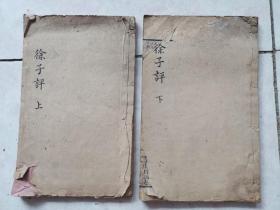 徐子評
上
徐子評
下